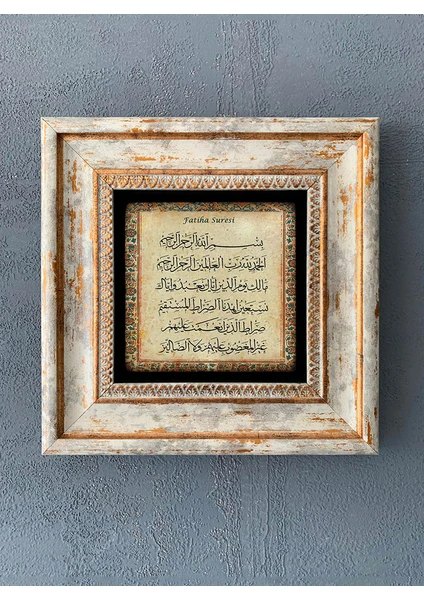 Fatiha Suresi
بسم الله الرحمن الرحيم
الحمد لله رب العالمين الرحمن الرحيم
مالك يوم الدين إياك نعبد وإياك
نستعين اهدنا الصراط المستقيم
صراط الذين أنعمت عليهم
غير المغضوب عليهم ولا الضالين